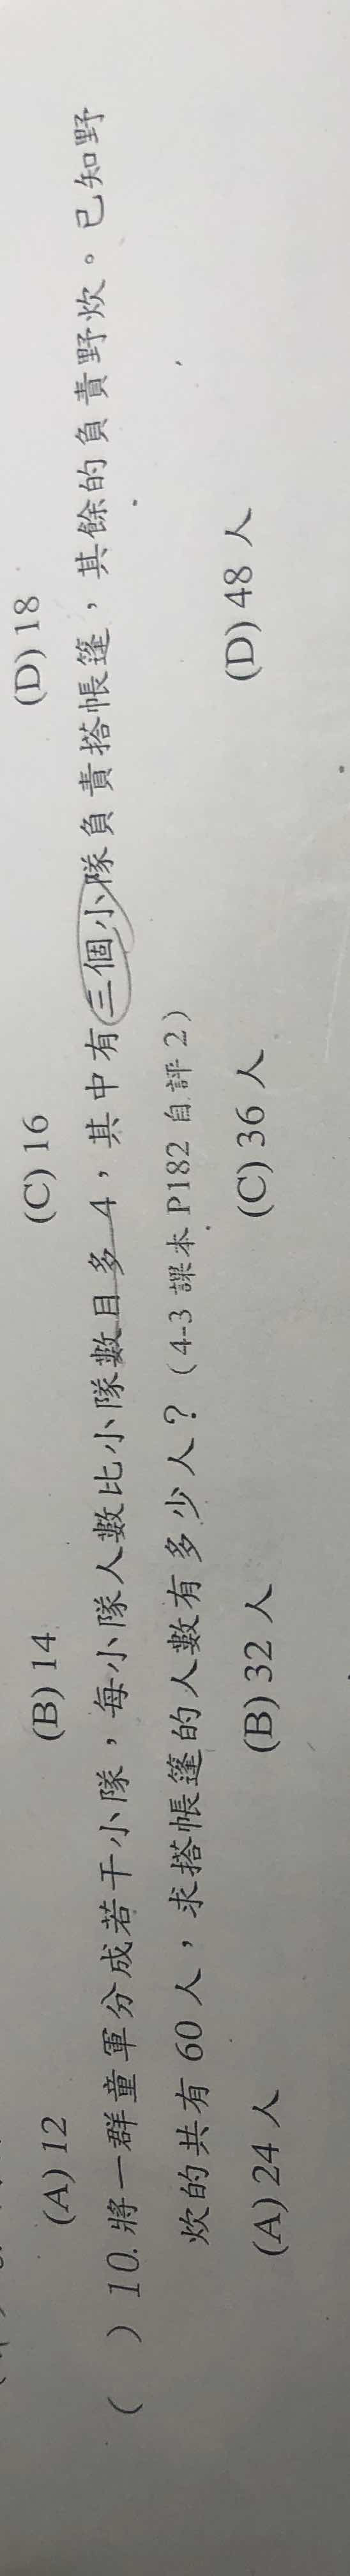 (A) 12 (B) 14 (C) 16 (D) 18
(  ) 10. 將一群童軍分成若干小隊，每小隊人數比小隊數目多 4，其中有三個小隊負責搭帳篷，其餘的負責野炊。已知野
炊的共有 60 人，求搭帳篷的人數有多少人？（4-3 課本 P182 自評 2）
(A) 24 人 (B) 32 人 (C) 36 人 (D) 48 人